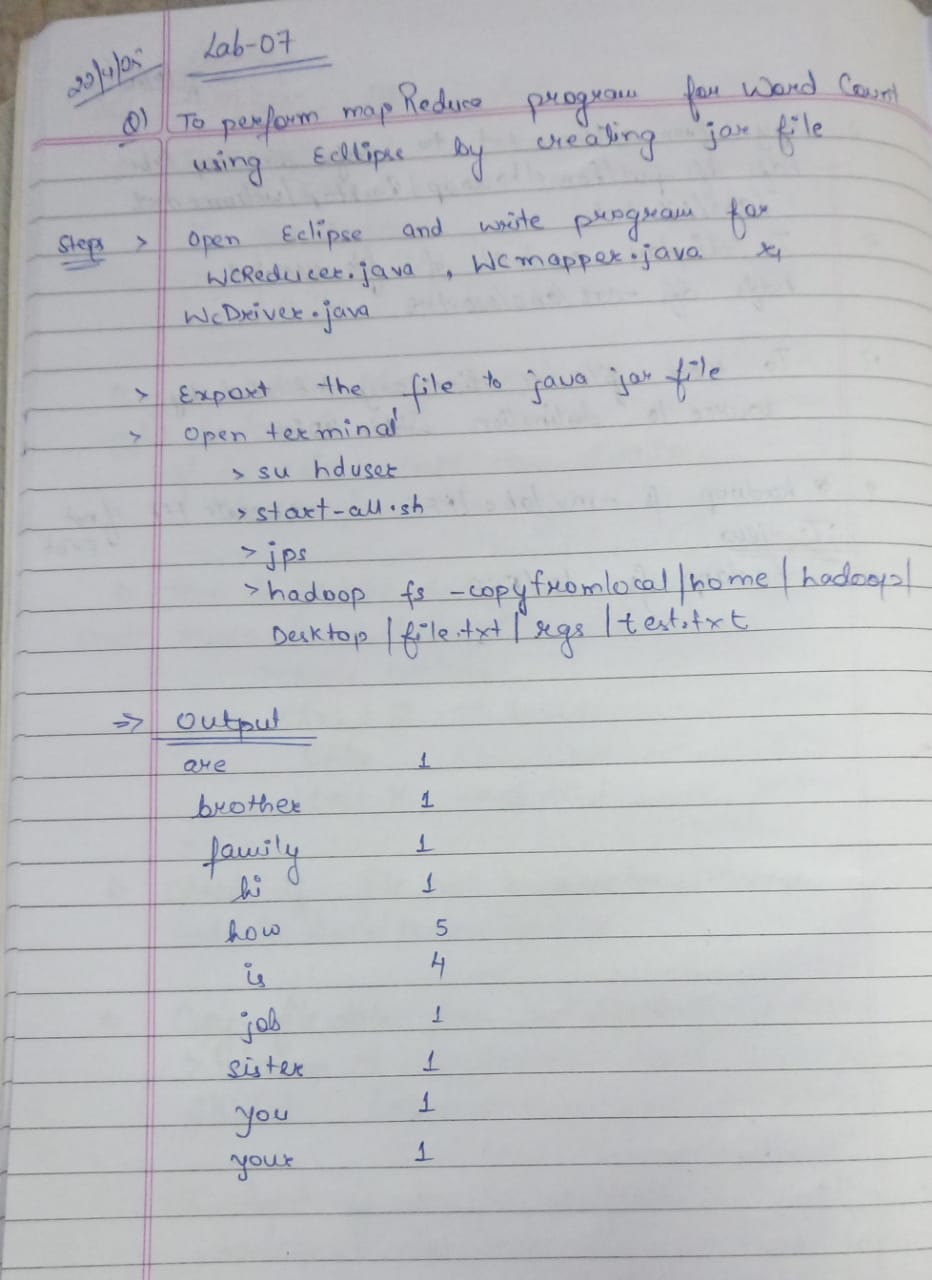 22/4/25
Lab-07
Q) To perform mapReduce program for Word Count
using Ecllipse by creating jar file
Steps > Open Eclipse and write program for
WCReducer.java , WCmapper.java &
WcDriver.java
> Export the file to java jar file
> Open terminal
> su hduser
> start-all.sh
> jps
> hadoop fs -copyfromlocal/home/hadoop/
Desktop/file.txt/rgs/test.txt
=> Output
are 1
brother 1
family 1
hi 1
how 5
is 4
job 1
sister 1
you 1
your 1